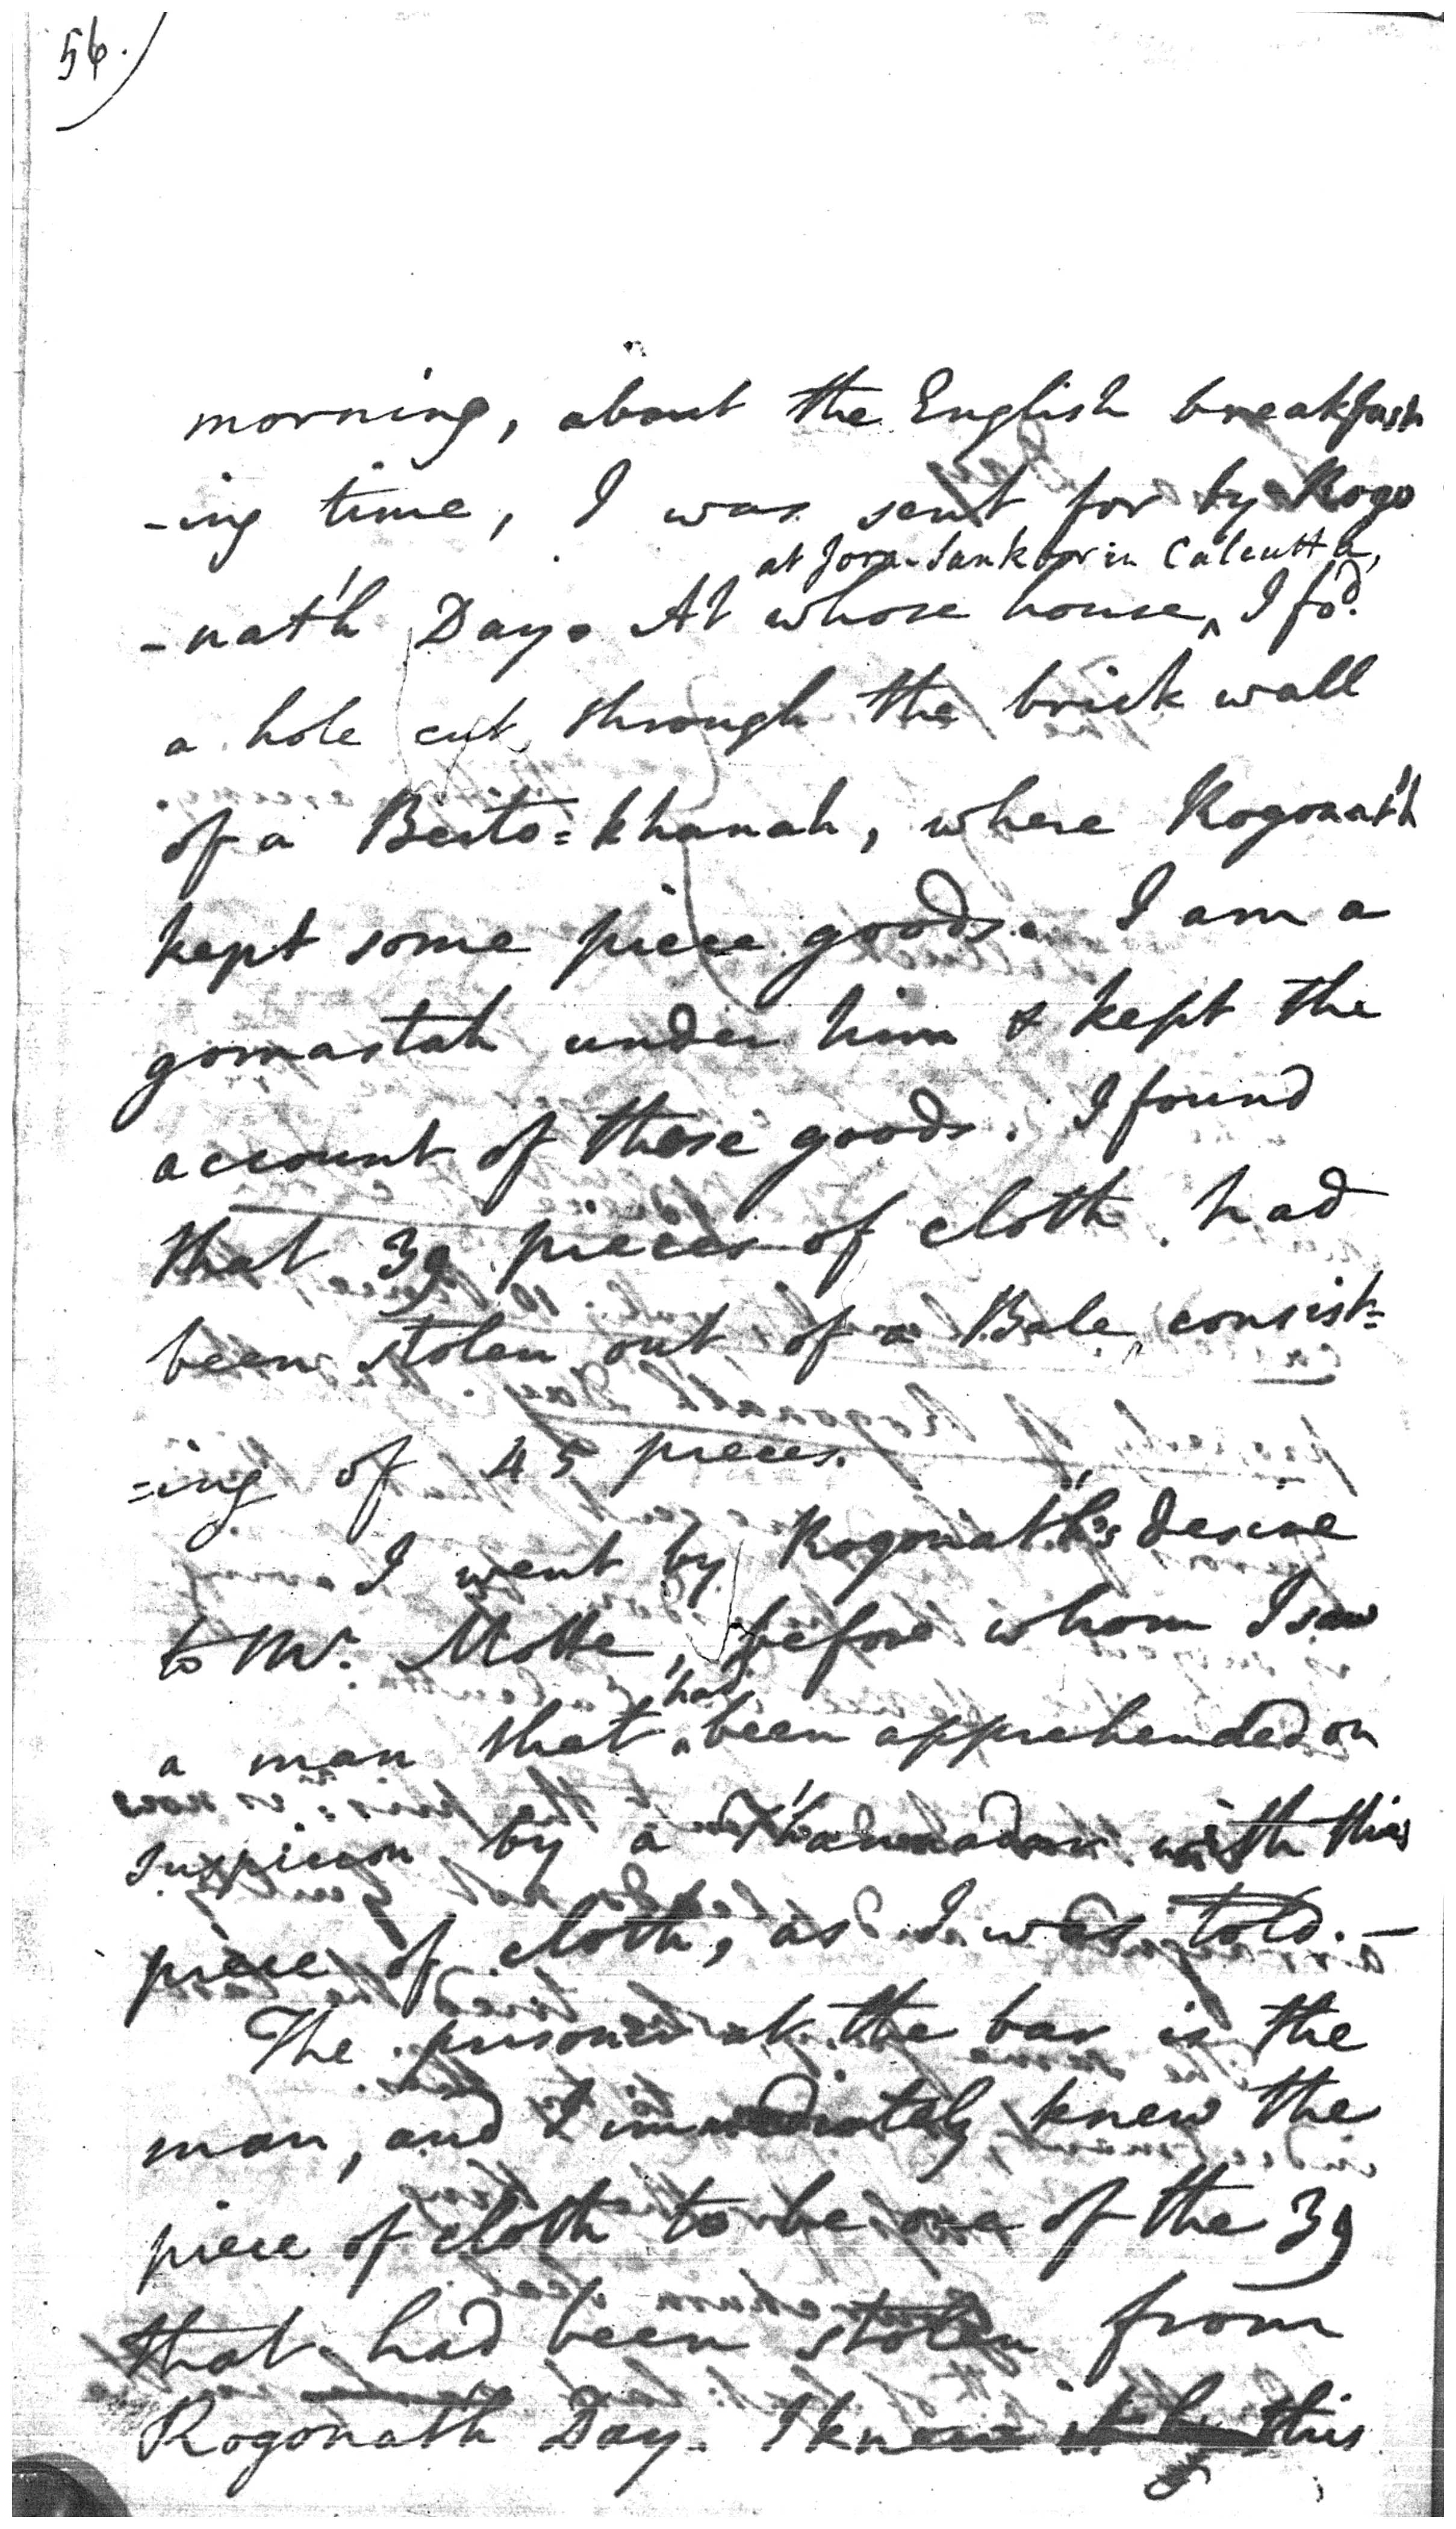 56.
morning, about the English breakfast
-ing time, I was sent for by Rogo
at Jora-Sankoor in Calcutta,
-nath Day. At whose house, I fo'd.
a hole cut through the brick wall
of a Beito=khanah, where Rogonath
kept some piece goods. I am a
gomastah under him & kept the
account of these goods. I found
that 39 pieces of cloth had
been stolen out of a Bale, consist=
=ing of 45 pieces.
I went by Rogonath's desire
to Mr. Motte, before whom I saw
had
a man that been apprehended on
suspicion by a with this
piece of cloth, as I was told.—
The prisoner at the bar is the
man, and I immediately knew the
piece of cloth to be one of the 39
that had been stolen from
Rogonath Day. I knew it by this